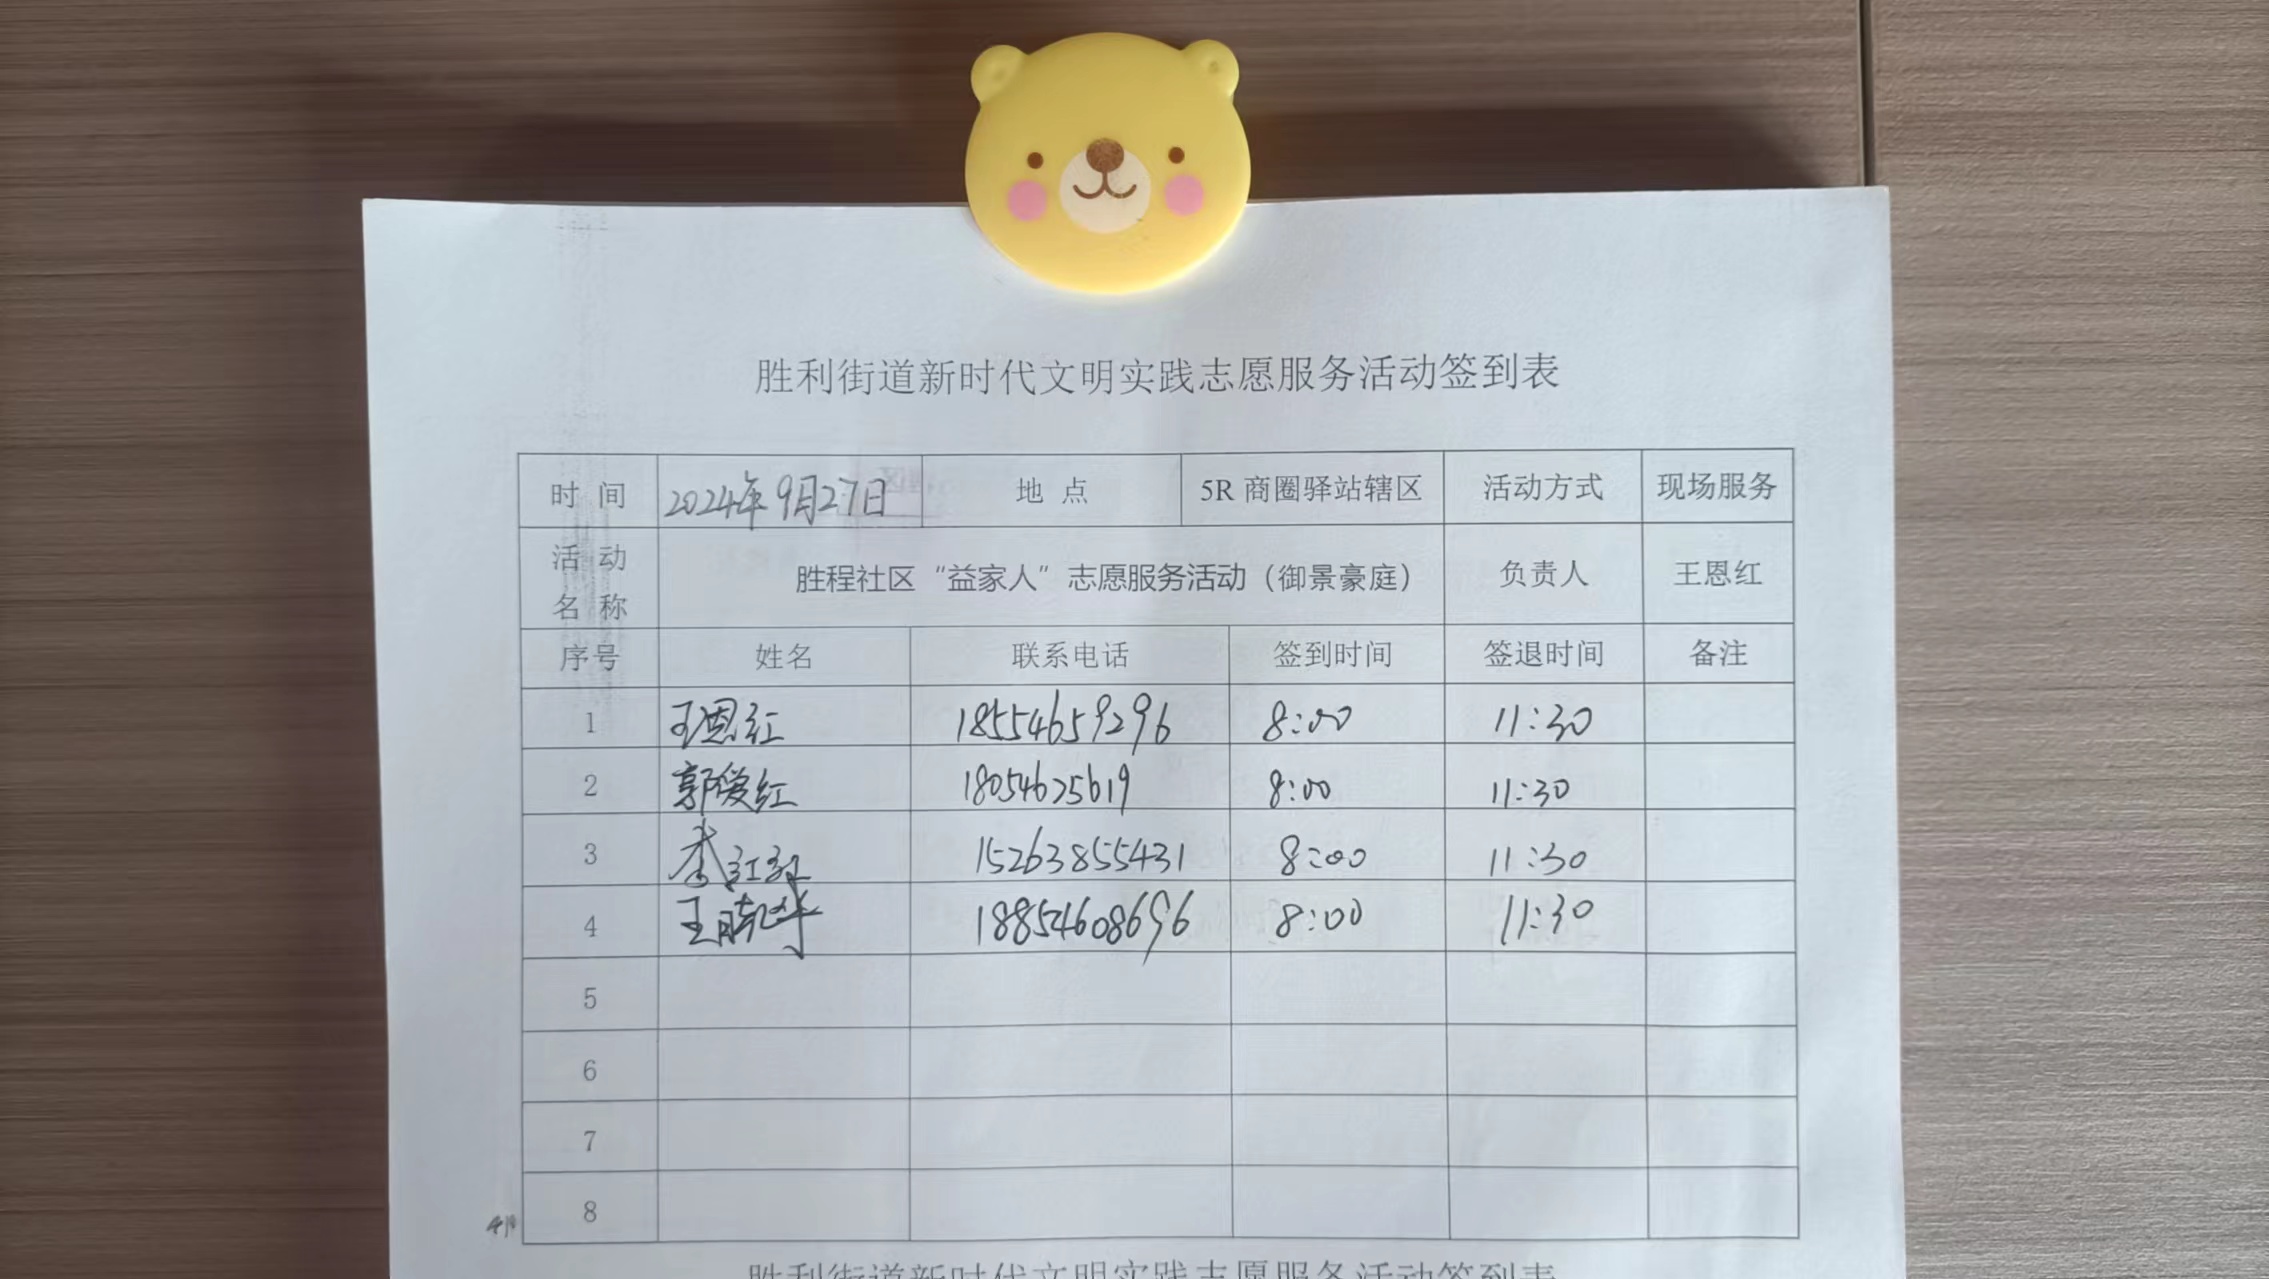 胜利街道新时代文明实践志愿服务活动签到表
时 间 2024年9月27日 地 点 5R 商圈驿站辖区 活动方式 现场服务
活 动 名 称 胜程社区“益家人”志愿服务活动（御景豪庭） 负责人 王恩红
序号 姓名 联系电话 签到时间 签退时间 备注
1 王恩红 18554659296 8:00 11:30
2 郭爱红 18054625619 8:00 11:30
3 李红红 15263855431 8:00 11:30
4 王晓华 18854608696 8:00 11:30
5
6
7
8
胜利街道新时代文明实践志愿服务活动签到表